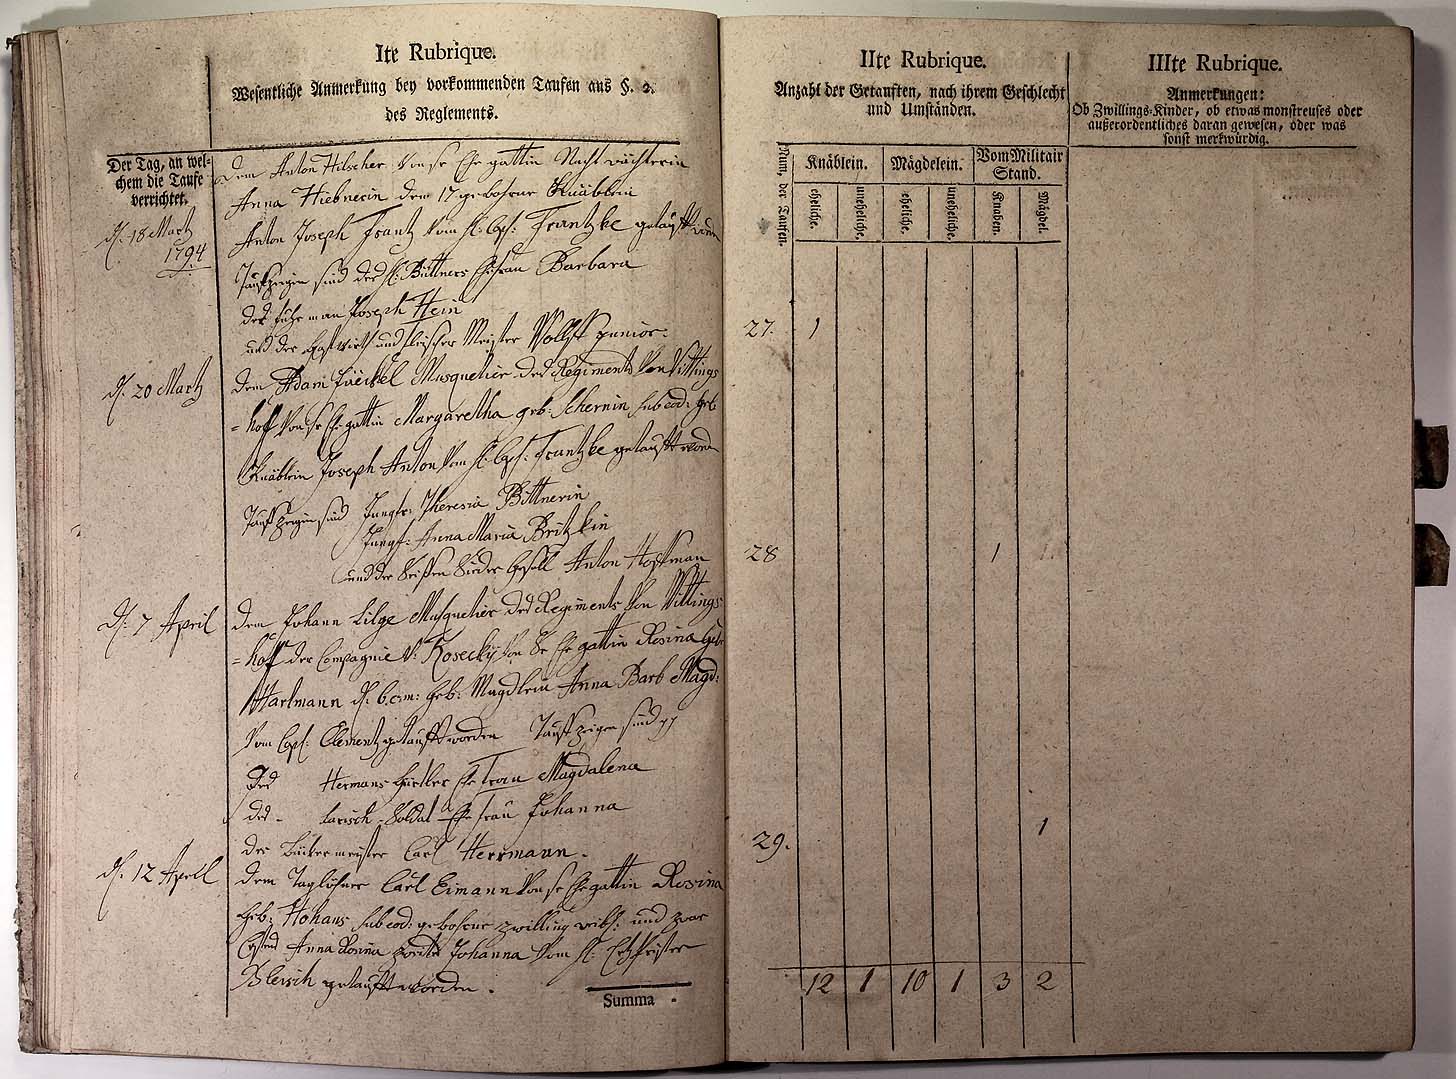 Ite Rubrique.
Wesentliche Anmerkung bey vorkommenden Taufen aus §. 2.
des Reglements.
Der Tag, an wel-
chem die Taufe
verrichtet.
d. 18 Martz
1794
dem Anton Hilscher von se Ehegattin Nachtwächterin
Anna Hiebnerin dem 17 gebohrne Knäblein
Anton Joseph Frantz vom H: Cap: Frantzke getaufft worden
Tauffzeigen sind des H: Büttners Ehefrau Barbara
der Joseph Hein
und der Gastwirth und Meister junior.
d. 20 Martz
dem Adam Musquetier des Regiments von Vittings
= hoff von se Ehegattin Margaretha geb: Schernin sub eod: geb
Knäblein Joseph Anton vom H: Cap: Frantzke getaufft word
Tauffzeigen sind Jungfr: Theresia Bittnerin
Jungf: Anna Maria Britzkin
und der Seiffen Sieder Gesell Anton Hoffman
d. 7 April
dem Johann Lilge Musquetier des Regiments von Vittings
= hoff der Compagnie v. Kosecky von se Ehegattin Rosina geb:
Hartmann d. 6. c. m: geb: Magdlein Anna Barb Magd:
vom Cap: Clementz getaufft worden Tauffzeigen sind
Des Hermans Gürtler Ehe Frau Magdalena
des - Larisch - Soldat Ehefrau Johanna
der Bäckermeister Carl Herrmann.
d. 12 Aprill
dem Taglöhner Carl Eimann von se Ehegattin Rosina
geb: Hohans sub eod: gebohrne zwilling weibl: und zwar
Erstens Anna Rosina zweite Johanna vom H: Ertzpriester
Blersch getaufft worden.
Summa
IIte Rubrique.
Anzahl der Getauften, nach ihrem Geschlecht
und Umständen.
Num, der Taufen.
Knäblein. Mägdelein. Vom Militair
Stand.
eheliche. uneheliche. eheliche. uneheliche. Knaben. Mägdel.
27. 1
28 1
29. 1
12 1 10 1 3 2
IIIte Rubrique.
Anmerkungen:
Ob Zwillings-Kinder, ob etwas monstreuses oder
außerordentliches daran gewesen, oder was
sonst merkwürdig.